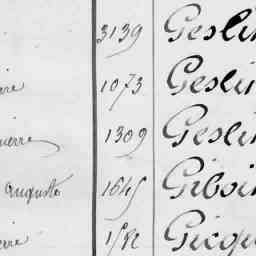 3139 Geslin
ire 1073 Geslin
ierre 1309 Geslin
Auguste 1645 Giboi
ierre 1582 Gicqu